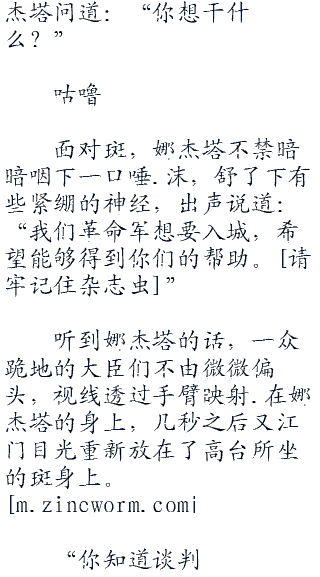 杰塔问道：“你想干什
么？”
咕噜
面对斑，娜杰塔不禁暗
暗咽下一口唾.沫，舒了下有
些紧绷的神经，出声说道：
“我们革命军想要入城，希
望能够得到你们的帮助。[请
牢记住杂志虫]”
听到娜杰塔的话，一众
跪地的大臣们不由微微偏
头，视线透过手臂映射.在娜
杰塔的身上，几秒之后又江
门目光重新放在了高台所坐
的斑身上。
[m.zincworm.com]
“你知道谈判